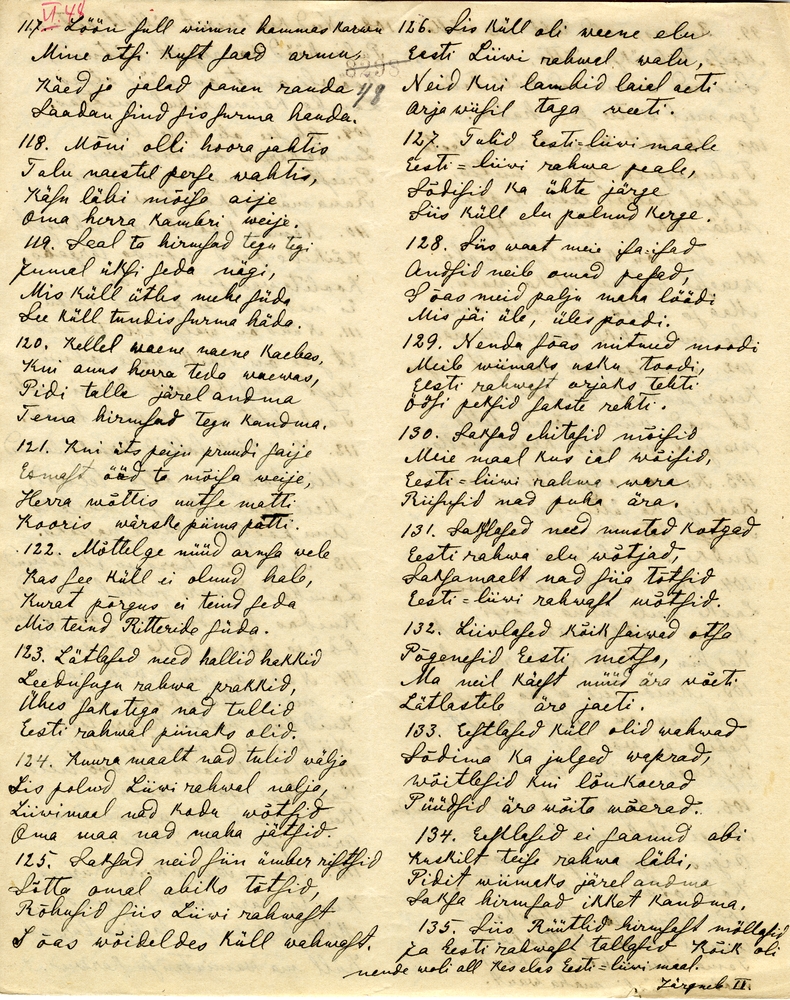 VI. 48
117. Löön sull wiimne hammas karwu
Mine otsi kust saad armu,
Käed ja jalad panen randa
Saadan sind siis surma handa.
48
118. Mõni olli hoora jahtis
Talu naestel perse wahtis,
Käsu läbi mõisa aije
Oma herra kambri weije.
119. Seal ta hirmsad tegu tegi
Jummal üksi seda nägi,
Mis küll ütles mehe süda
See küll tundis surma häda.
120. Kellel waene naene kaebas,
Kui auus herra teda waewas,
Pidi talle järel andma
Tema hirmsad tegu kandma.
121. Kui üts peiju pruudi saije
Esmast ööd ta mõisa weije,
Herra wõttis uutse matti
Kooris wärske piima pätti.
122. Mõttelge nüüd armsa wele
Kas see küll ei olnud hale,
Kurat põrgus ei teind seda
Mis teind Ritteride süda.
123. Lätlased need hallid hakkid
Leedusugu rahwa prakkid,
Ühes sakstega nad tullid
Eesti rahwal piinaks olid.
124. Kuura maalt nad tulid wälja
Sis polnud Liiwi rahwal nalja,
Liiwimaal nad kodu wõtsid
Oma maa nad maha jätsid.
125. Saksad neid siin ümber ristsid
Sõtta omal abiks tõtsid,
Rõhusid siis Liiwi rahwast
Sõas wõideldes küll wahwast.
126. Sis küll oli weene elu
Eesti Liiwi rahwal walu,
Neid kui lambid laial aeti
Orja wiisil taga weeti.
127. Tulid Eesti=liiwi maale
Eesti=liiwi rahwa peale,
Sõdisid ka ühte järge
Siis küll elu polnud kerge.
128. Siis waat meie isa-isad
Andsid neile omad pesad,
Sõas meid palju maha löödi
Mis jäi üle, üles poodi.
129. Nenda sõas mitmed moodi
Meile wiimaks usku toodi,
Eesti rahwast orjaks tehti
Õdsi peksid sakste rehti.
130. Saksad ehitasid mõisid
Meie maal kus ial wõisid,
Eesti=liiwi rahwa wara
Riisusid nad puha ära.
131. Sakslased need mustad kotgad
Eesti rahwa elu wõtjad,
Saksamaalt nad siia tõtsid
Eesti=liiwi rahwast wõtsid.
132. Liiwlased kõik saiwad otsa
Põgenesid Eesti metsa,
Ma neil käest nüüd ära wõeti
Lätlastele ära jaeti.
133. Eestlased küll olid wahwad
Sõdima ka julged waprad,
wõitlesid kui lõukoerad
Püüdsid ära wõita wõerad.
134. Eestlased ei saanud abi
Kuskilt teise rahwa läbi,
Pidit wiimaks järel andma
Saksa hirmsad ikket kandma.
135. Siis Rüütlid hirmsast möllasid
Ja Eesti rahwast tallasid Kõik oli
nende woli all kes elas Eesti=liiwi maal.
Järgneb II.